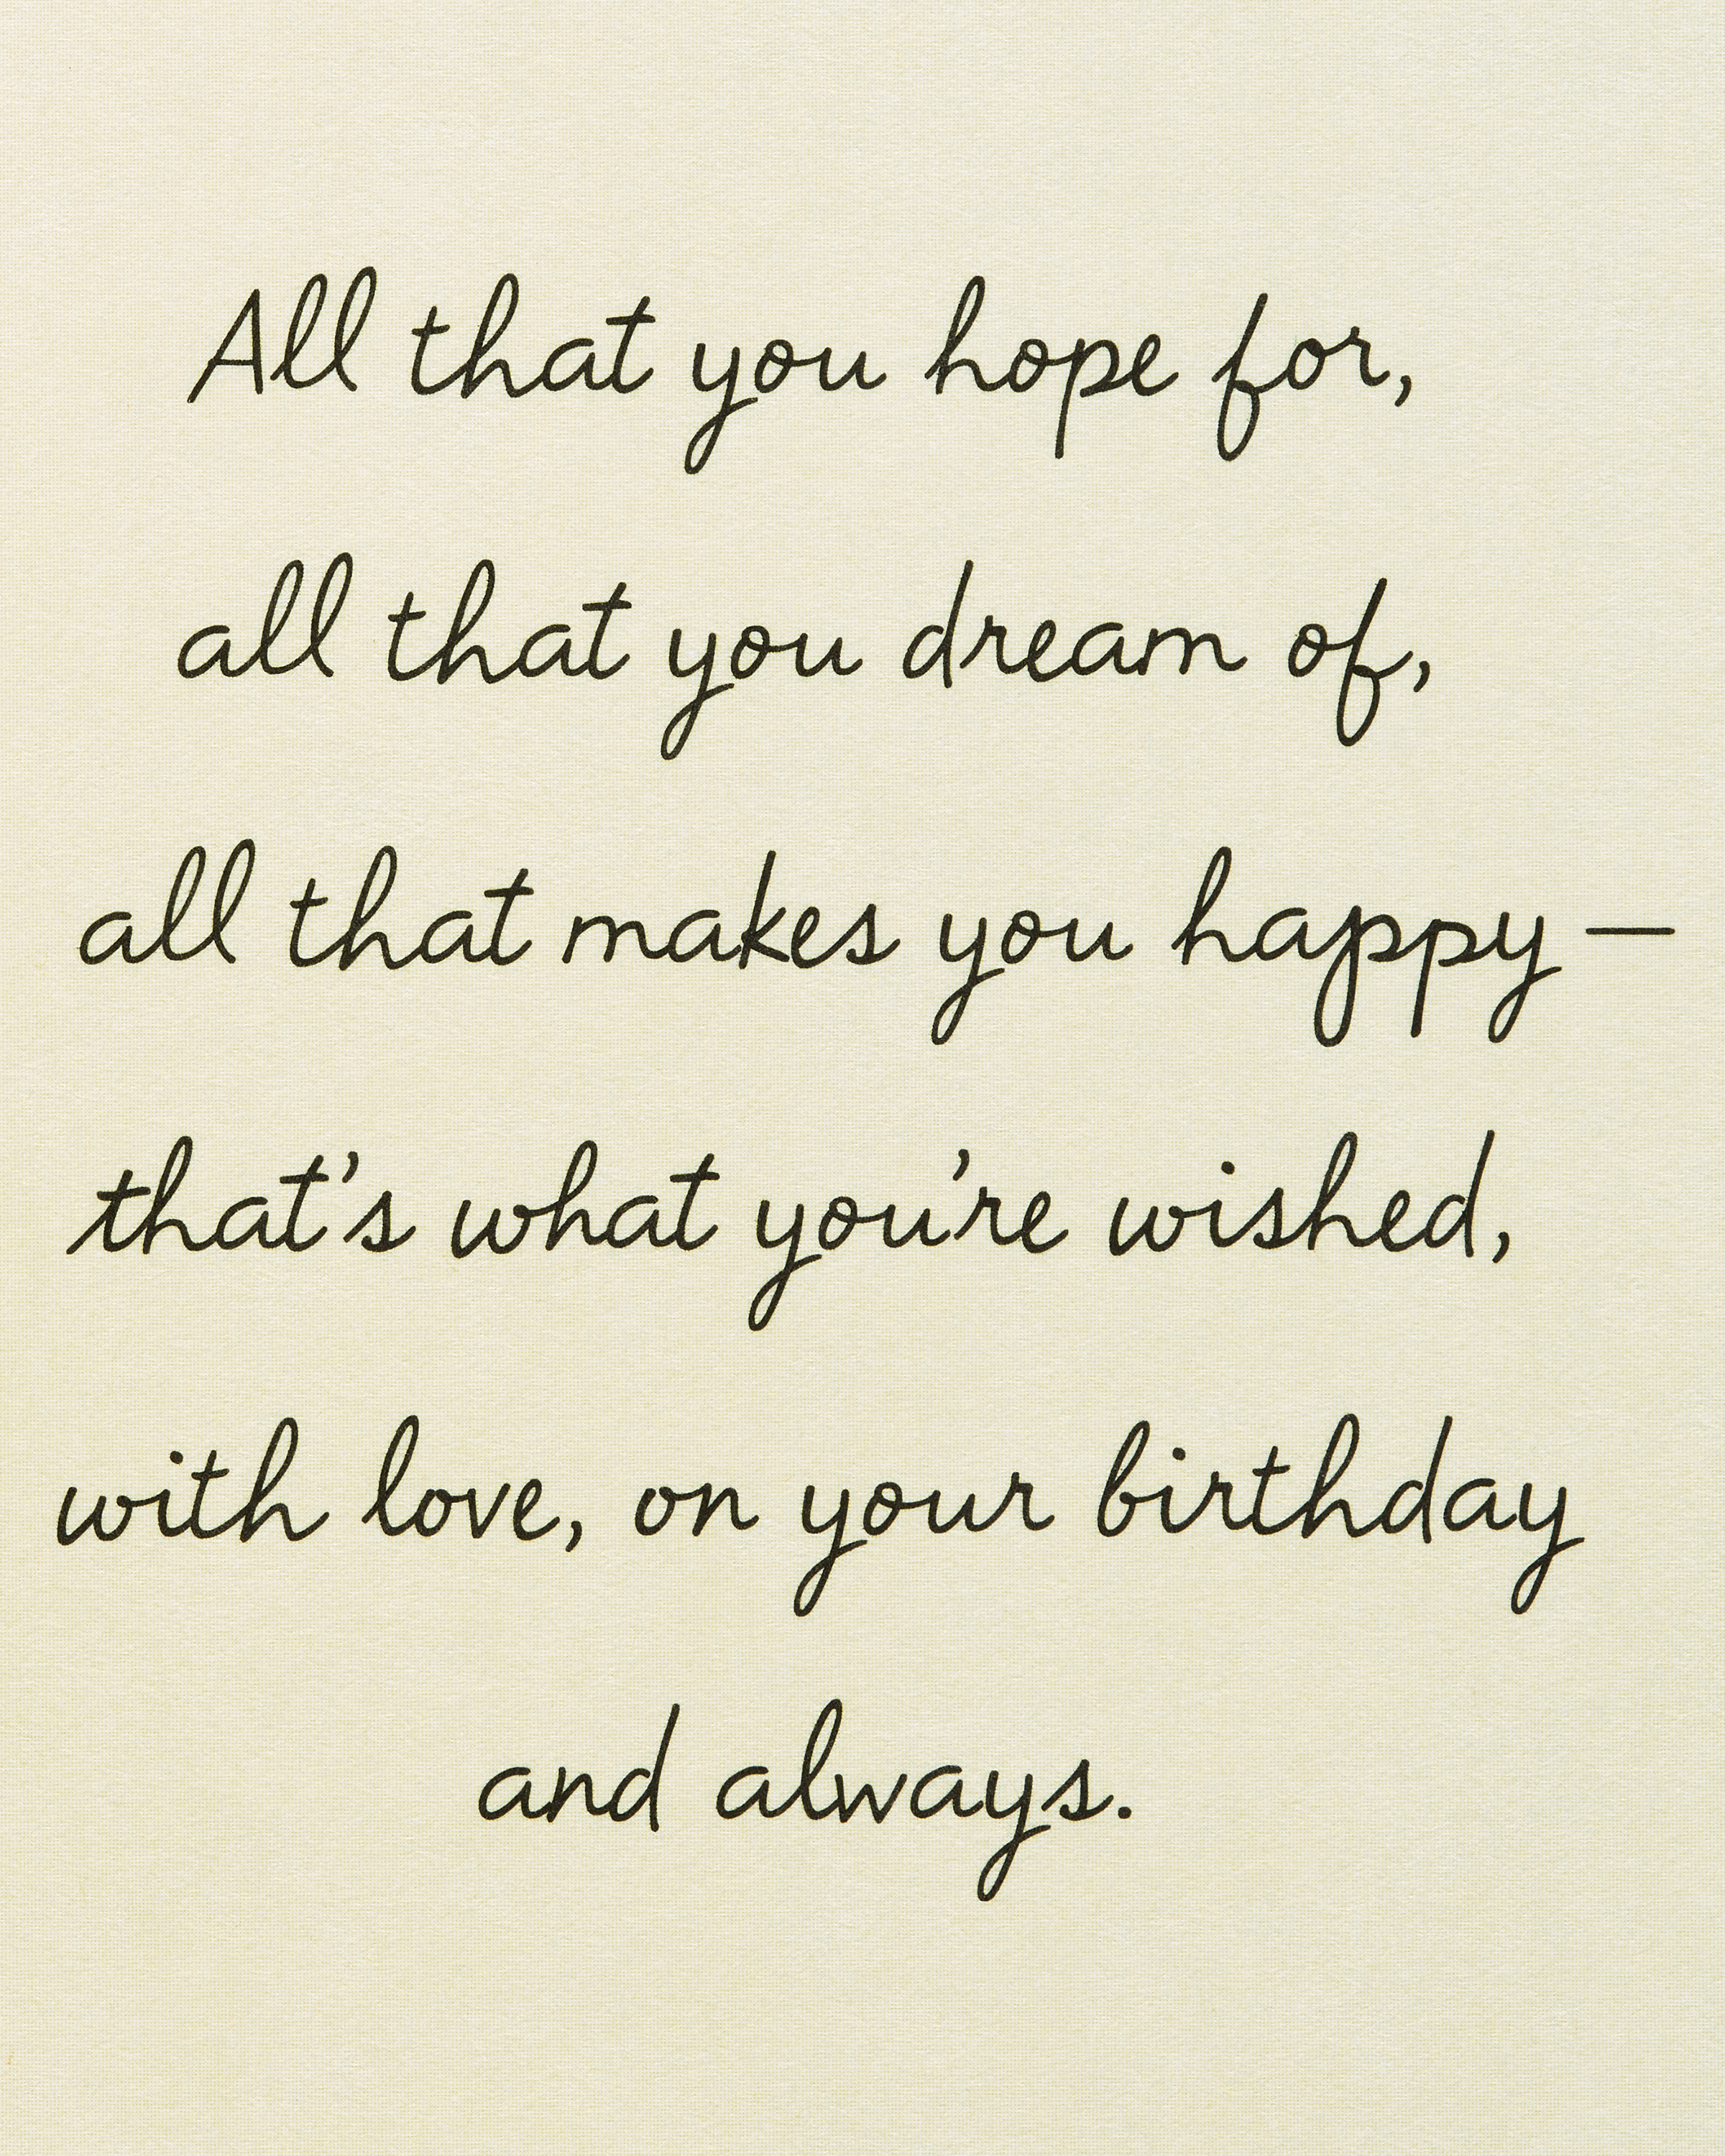 All that you hope for,
all that you dream of,
all that makes you happy —
that's what you're wished,
with love, on your birthday
and always.